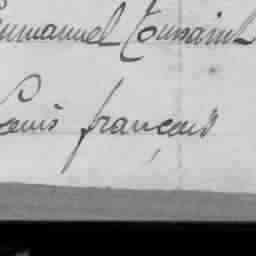 Emmanuel Toussaint
Louis françois